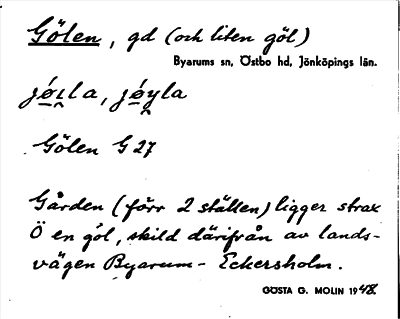 Gölen, gd (och liten göl)
Byarums sn, Östbo hd, Jönköpings län.
Gölen G 27
Gården (förr 2 ställen) ligger strax
Ö en göl, skild därifrån av lands-
vägen Byarum - Eckersholm.
GÖSTA G. MOLIN 1948.